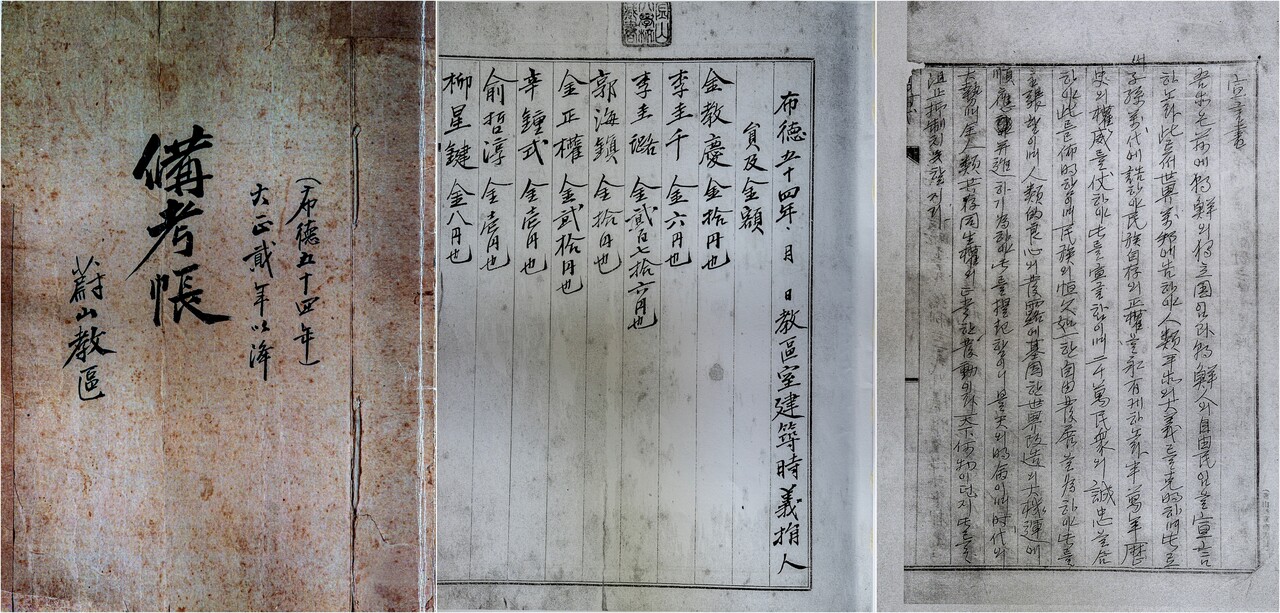 (布德五十四年)
大正貳年以降
備考帳
蔚山教區
布德五十四年 月 日教區室建築時義捐人
員及金額
金教慶 金拾円也
李圭千 金六円也
李圭璐 金貳百七拾六円也
郭海鎖 金拾円也
金正權 金貳拾円也
辛鍾式 金壱円也
俞哲淳 金壱円也
柳星鍵 金八円也
宣言書
吾等은 玆에 朝鮮의 獨立國임과 朝鮮人의 自由民임을 宣言
하노라 此로써 世界萬邦에 告하야 人類平等의 大義를 克明하며 此로
써 子孫萬代에 誥하야 民族自存의 正權을 永有케하노라 半萬年歷
史의 權威를 仗하야 此를 宣言함이며 二千萬民衆의 誠忠을 合
하야 此를 佈明함이며 民族의 恒久如一한 自由發展을 爲하야 此를
主張함이며 人類的良心의 發露에 基因한 世界改造의 大機運에
順應幷進하기 爲하야 此를 提起함이니 是天의 明命이며 時代의
大勢며 全人類共存同生權의 正當한 發動이라 天下何物이던지 此를
沮止抑制치 못할지니라